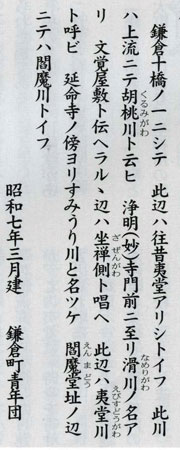 鎌倉十橋ノ一ニシテ 此辺ハ往昔夷堂アリシトイフ 此川
ハ上流ニテ胡桃川ト云ヒ 浄明(妙)寺門前ニ至リ滑川ノ名ア
リ 文覚屋敷ト伝ヘラルヽ辺ハ坐禅側ト唱ヘ 此辺ハ夷堂川
ト呼ビ 延命寺ノ傍ヨリすみうり川と名ツケ 閻魔堂址ノ辺
ニテハ閻魔川トイフ
昭和七年三月建 鎌倉町青年団
くるみがわ
なめりがわ
ざぜんがわ
えびすどうがわ
えんまどう